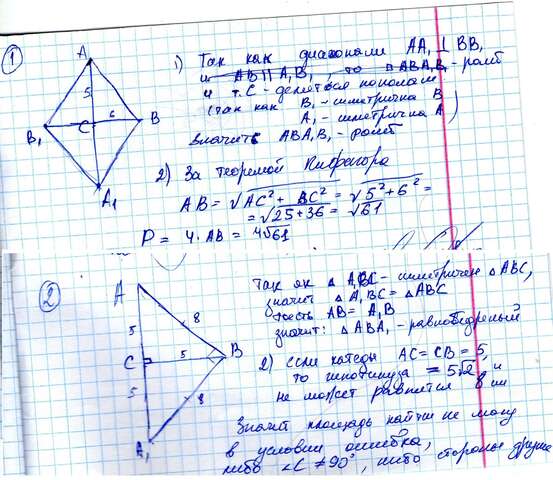 ①
A
5
6
B₁
C
B
A₁
1) Так как диагонали AA₁ ⊥ BB₁
и AB || A₁B₁, то ▱ ABA₁B₁ - ромб
и т. С - делятся пополам
(так как B₁ - симетрична B
A₁ - симетрична A)
значить ABA₁B₁ - ромб
2) За теоремой Пифагора
AB = √AC² + BC² = √5² + 6² =
= √25 + 36 = √61
P = 4 · AB = 4√61
②
A
8
5
5
C
B
5
8
A₁
Так як △ A₁BC - симетричен △ ABC,
значит △ A₁BC = △ ABC
тоесть AB = A₁B
значит: △ ABA₁ - равнобедреный
2) если катеты AC = CB = 5,
то гипотинуза = 5√2, и
не может равнятся 8 ми
Значит площадь найти не могу
в условии ошибка,
либо ∠C ≠ 90°, либо стороны другие